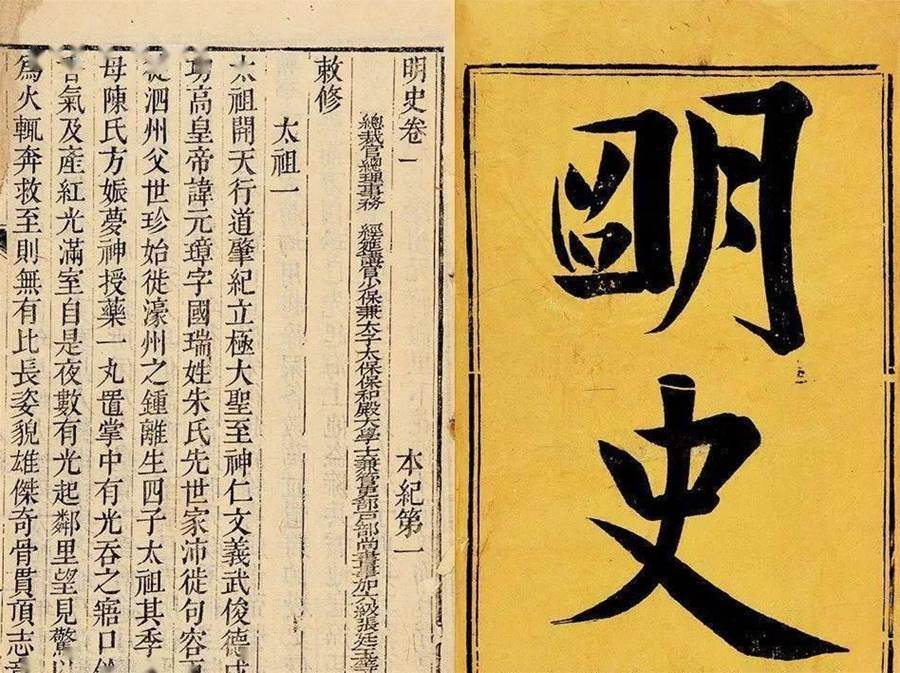 明史
明史卷一 本紀第一
總裁官總理事務 經筵講官少保兼太子太保保和殿大學士兼管吏部戶部尚書事加六級張廷玉等
敕修
太祖一
太祖開天行道肇紀立極大聖至神仁文義武俊德成
功高皇帝諱元璋字國瑞姓朱氏先世家沛徙句容再
徙泗州父世珍始徙濠州之鍾離生四子太祖其季
母陳氏方娠夢神授藥一丸置掌中有光吞之寤口餘
香氣及產紅光滿室自是夜數有光起鄰里望見驚以
爲火輒奔救至則無有比長姿貌雄傑奇骨貫頂志意